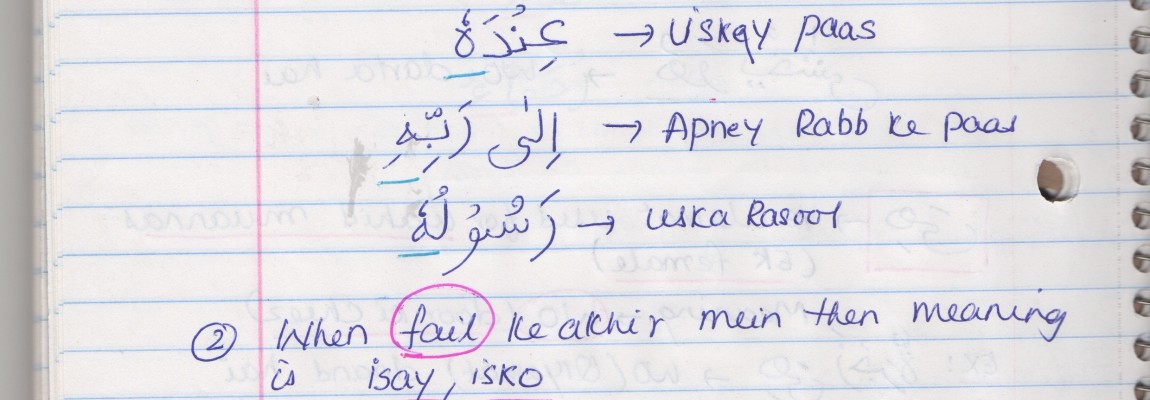 عِنْدَهٗ → Uskay paas
اِلٰى رَبِّهٖ → Apney Rabb ke paas
رَسُوْلُهٗ → uska Rasool
② When fail ke akhir mein then meaning
is isay, isko